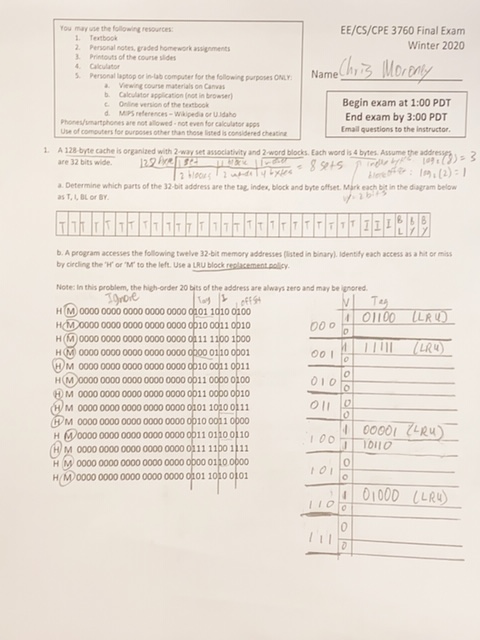 You may use the following resources:
1. Textbook
2. Personal notes, graded homework assignments
3. Printouts of the course slides
4. Calculator
5. Personal laptop or in-lab computer for the following purposes ONLY:
a. Viewing course materials on Canvas
b. Calculator application (not in browser)
c. Online version of the textbook
d. MIPS references – Wikipedia or U.Idaho
Phones/smartphones are not allowed - not even for calculator apps
Use of computers for purposes other than those listed is considered cheating
EE/CS/CPE 3760 Final Exam
Winter 2020
Name Chris
Begin exam at 1:00 PDT
End exam by 3:00 PDT
Email questions to the instructor.
1. A 128-byte cache is organized with 2-way set associativity and 2-word blocks. Each word is 4 bytes. Assume the addresses
are 32 bits wide.
= 8 sets
log₂(8) = 3
log₂(2) = 1
a. Determine which parts of the 32-bit address are the tag, index, block and byte offset. Mark each bit in the diagram below
as T, I, BL or BY.
T T T T T T T T T T T T T T T T T T T T T T T T T T I I I BL BY BY
b. A program accesses the following twelve 32-bit memory addresses (listed in binary). Identify each access as a hit or miss
by circling the 'H' or 'M' to the left. Use a LRU block replacement policy.
Note: In this problem, the high-order 20 bits of the address are always zero and may be ignored.
Ignore Tag I offset
H M 0000 0000 0000 0000 0000 0101 1010 0100
H M 0000 0000 0000 0000 0000 0010 0011 0010
H M 0000 0000 0000 0000 0000 0111 1100 1000
H M 0000 0000 0000 0000 0000 0000 0110 0001
H M 0000 0000 0000 0000 0000 0010 0011 0011
H M 0000 0000 0000 0000 0000 0011 0000 0100
H M 0000 0000 0000 0000 0000 0011 0000 0010
H M 0000 0000 0000 0000 0000 0101 1010 0111
H M 0000 0000 0000 0000 0000 0010 0011 0000
H M 0000 0000 0000 0000 0000 0011 0110 0110
H M 0000 0000 0000 0000 0000 0111 1100 1111
H M 0000 0000 0000 0000 0000 0000 0110 0000
H M 0000 0000 0000 0000 0000 0101 1010 0101
V Tag
000 1 01100 (LRU)
0
001 1 11111 (LRU)
0
010 0
0
011 0
0
100 1 00001 (LRU)
1 10110
101 0
0
110 1 01000 (LRU)
0
111 0
0